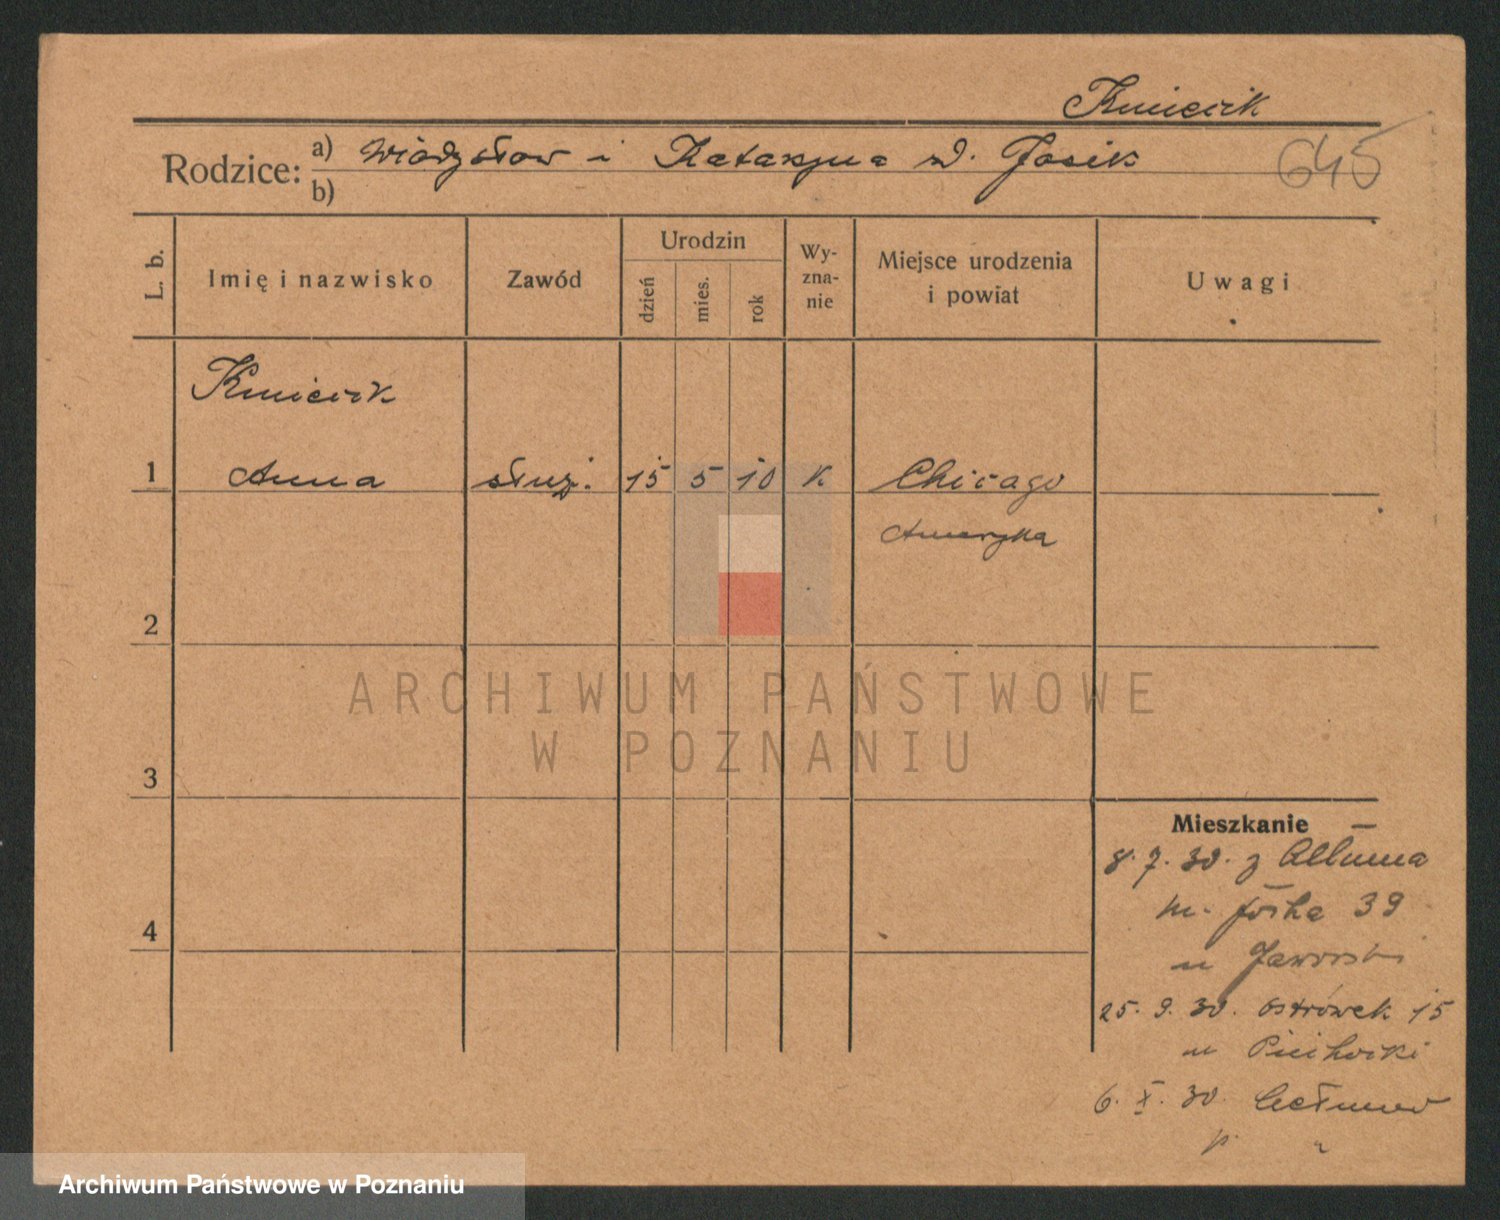 Kmiecik
Rodzice: a) Władysław i Katarzyna d. Josik
b)
645
L. b.
Imię i nazwisko
Zawód
Urodzin
dzień
mies.
rok
Wy-
zna-
nie
Miejsce urodzenia
i powiat
Uwagi
Kmiecik
1 Anna służ. 15 5 10 K Chicago
Ameryka
2
ARCHIWUM PAŃSTWOWE
W POZNANIU
3
4
Mieszkanie
8. 7. 30. z
39
u Jaworski
25. 9. 30. Ostrówek 15
u
6. X. 30.
Archiwum Państwowe w Poznaniu